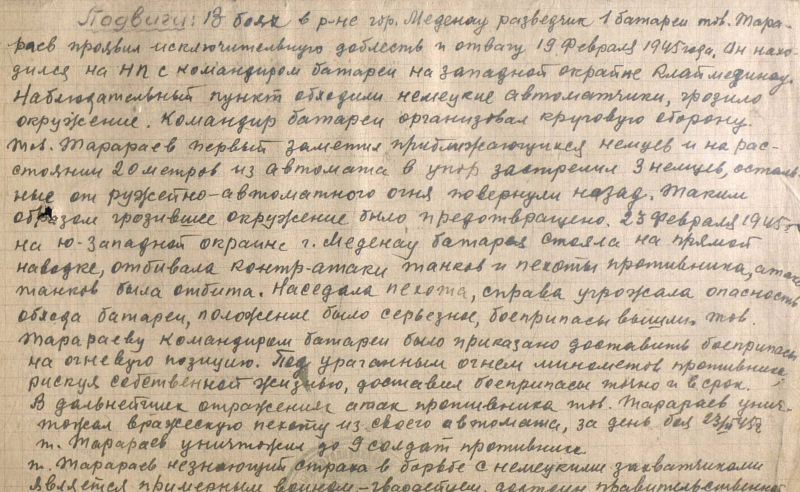 Подвиги: В боях в р-не гор. Меденау разведчик 1 батареи тов. Тара-
раев проявил исключительную доблесть и отвагу 19 февраля 1945 года. Он нахо-
дился на НП с командиром батареи на западной окраине Клаймединау.
Наблюдательный пункт обходили немецкие автоматчики, грозило
окружение. Командир батареи организовал круговую оборону.
тов. Тарараев первый заметил приближающихся немцев и на рас-
стоянии 20 метров из автомата в упор застрелил 3 немцев, осталь-
ные от ружейно-автоматного огня повернули назад. Таким
образом грозившее окружение было предотвращено. 23 февраля 1945г
на ю-западной окраине г. Меденау батарея стояла на прямой
наводке, отбивала контр-атаки танков и пехоты противника, атака
танков была отбита. Наседала пехота, справа угрожала опасность
обхода батареи, положение было серьезное, боеприпасы вышли. тов.
Тарараеву командиром батареи было приказано доставить боеприпасы
на огневую позицию. Под ураганным огнем минометов противника
рискуя собственной жизнью, доставил боеприпасы точно и в срок.
В дальнейших отражениях атак противника тов. Тарараев унич-
тожал вражескую пехоту из своего автомата, за день боя 23/II 45г
т. Тарараев уничтожил до 9 солдат противника.
т. Тарараев незнающий страха в борьбе с немецкими захватчиками
является примерным воином-гвардейцем, достоин правительственной